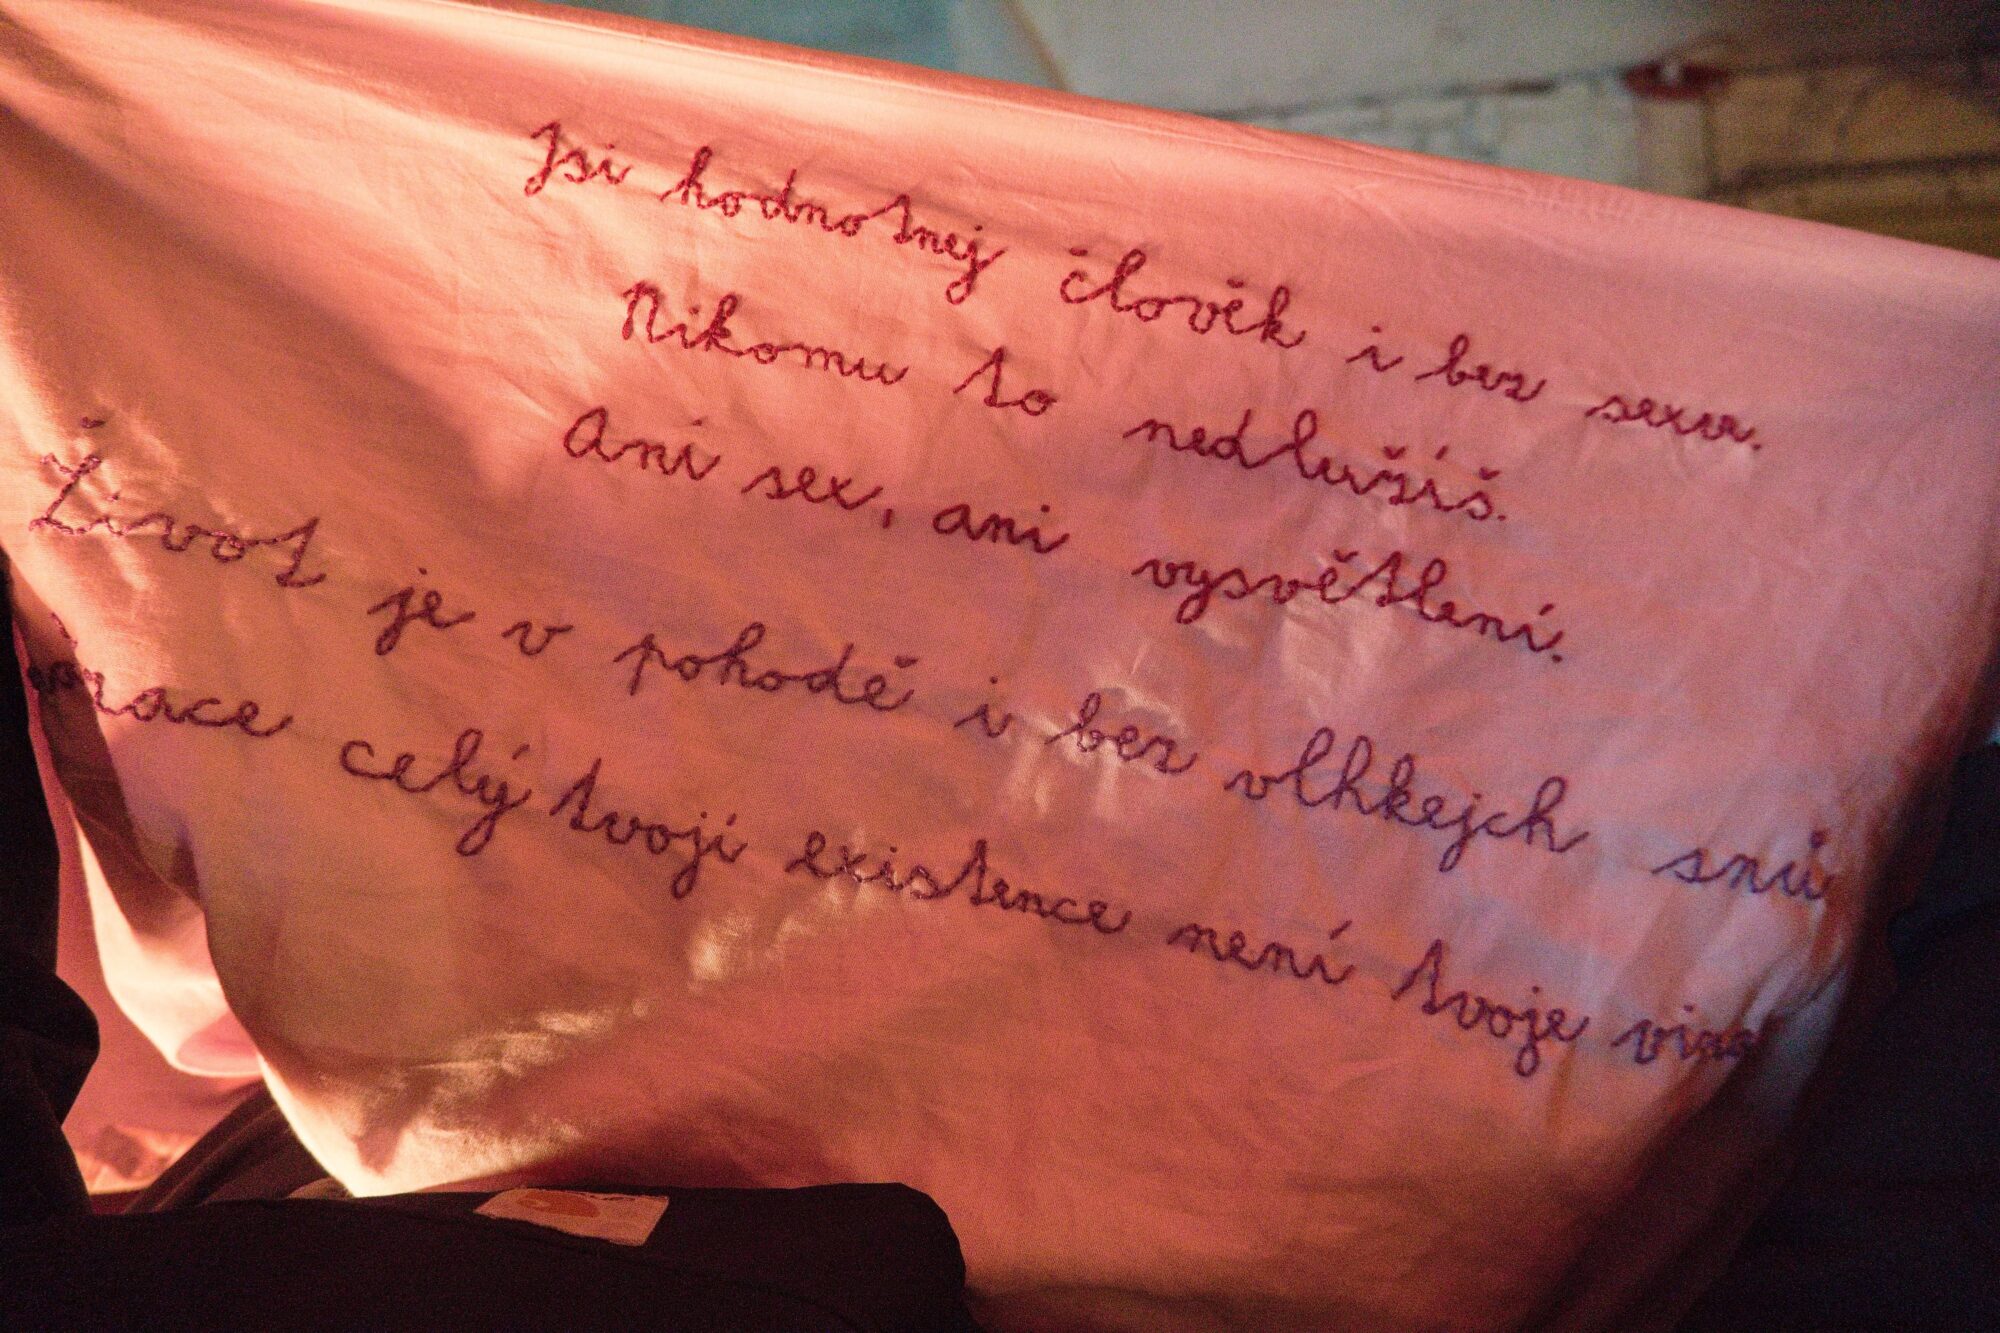 Jsi hodnotnej člověk i bez sexu.
Nikomu to nedlužíš.
Ani sex, ani vysvětlení.
Život je v pohodě i bez vlhkejch snů
celý tvojí existence není tvoje